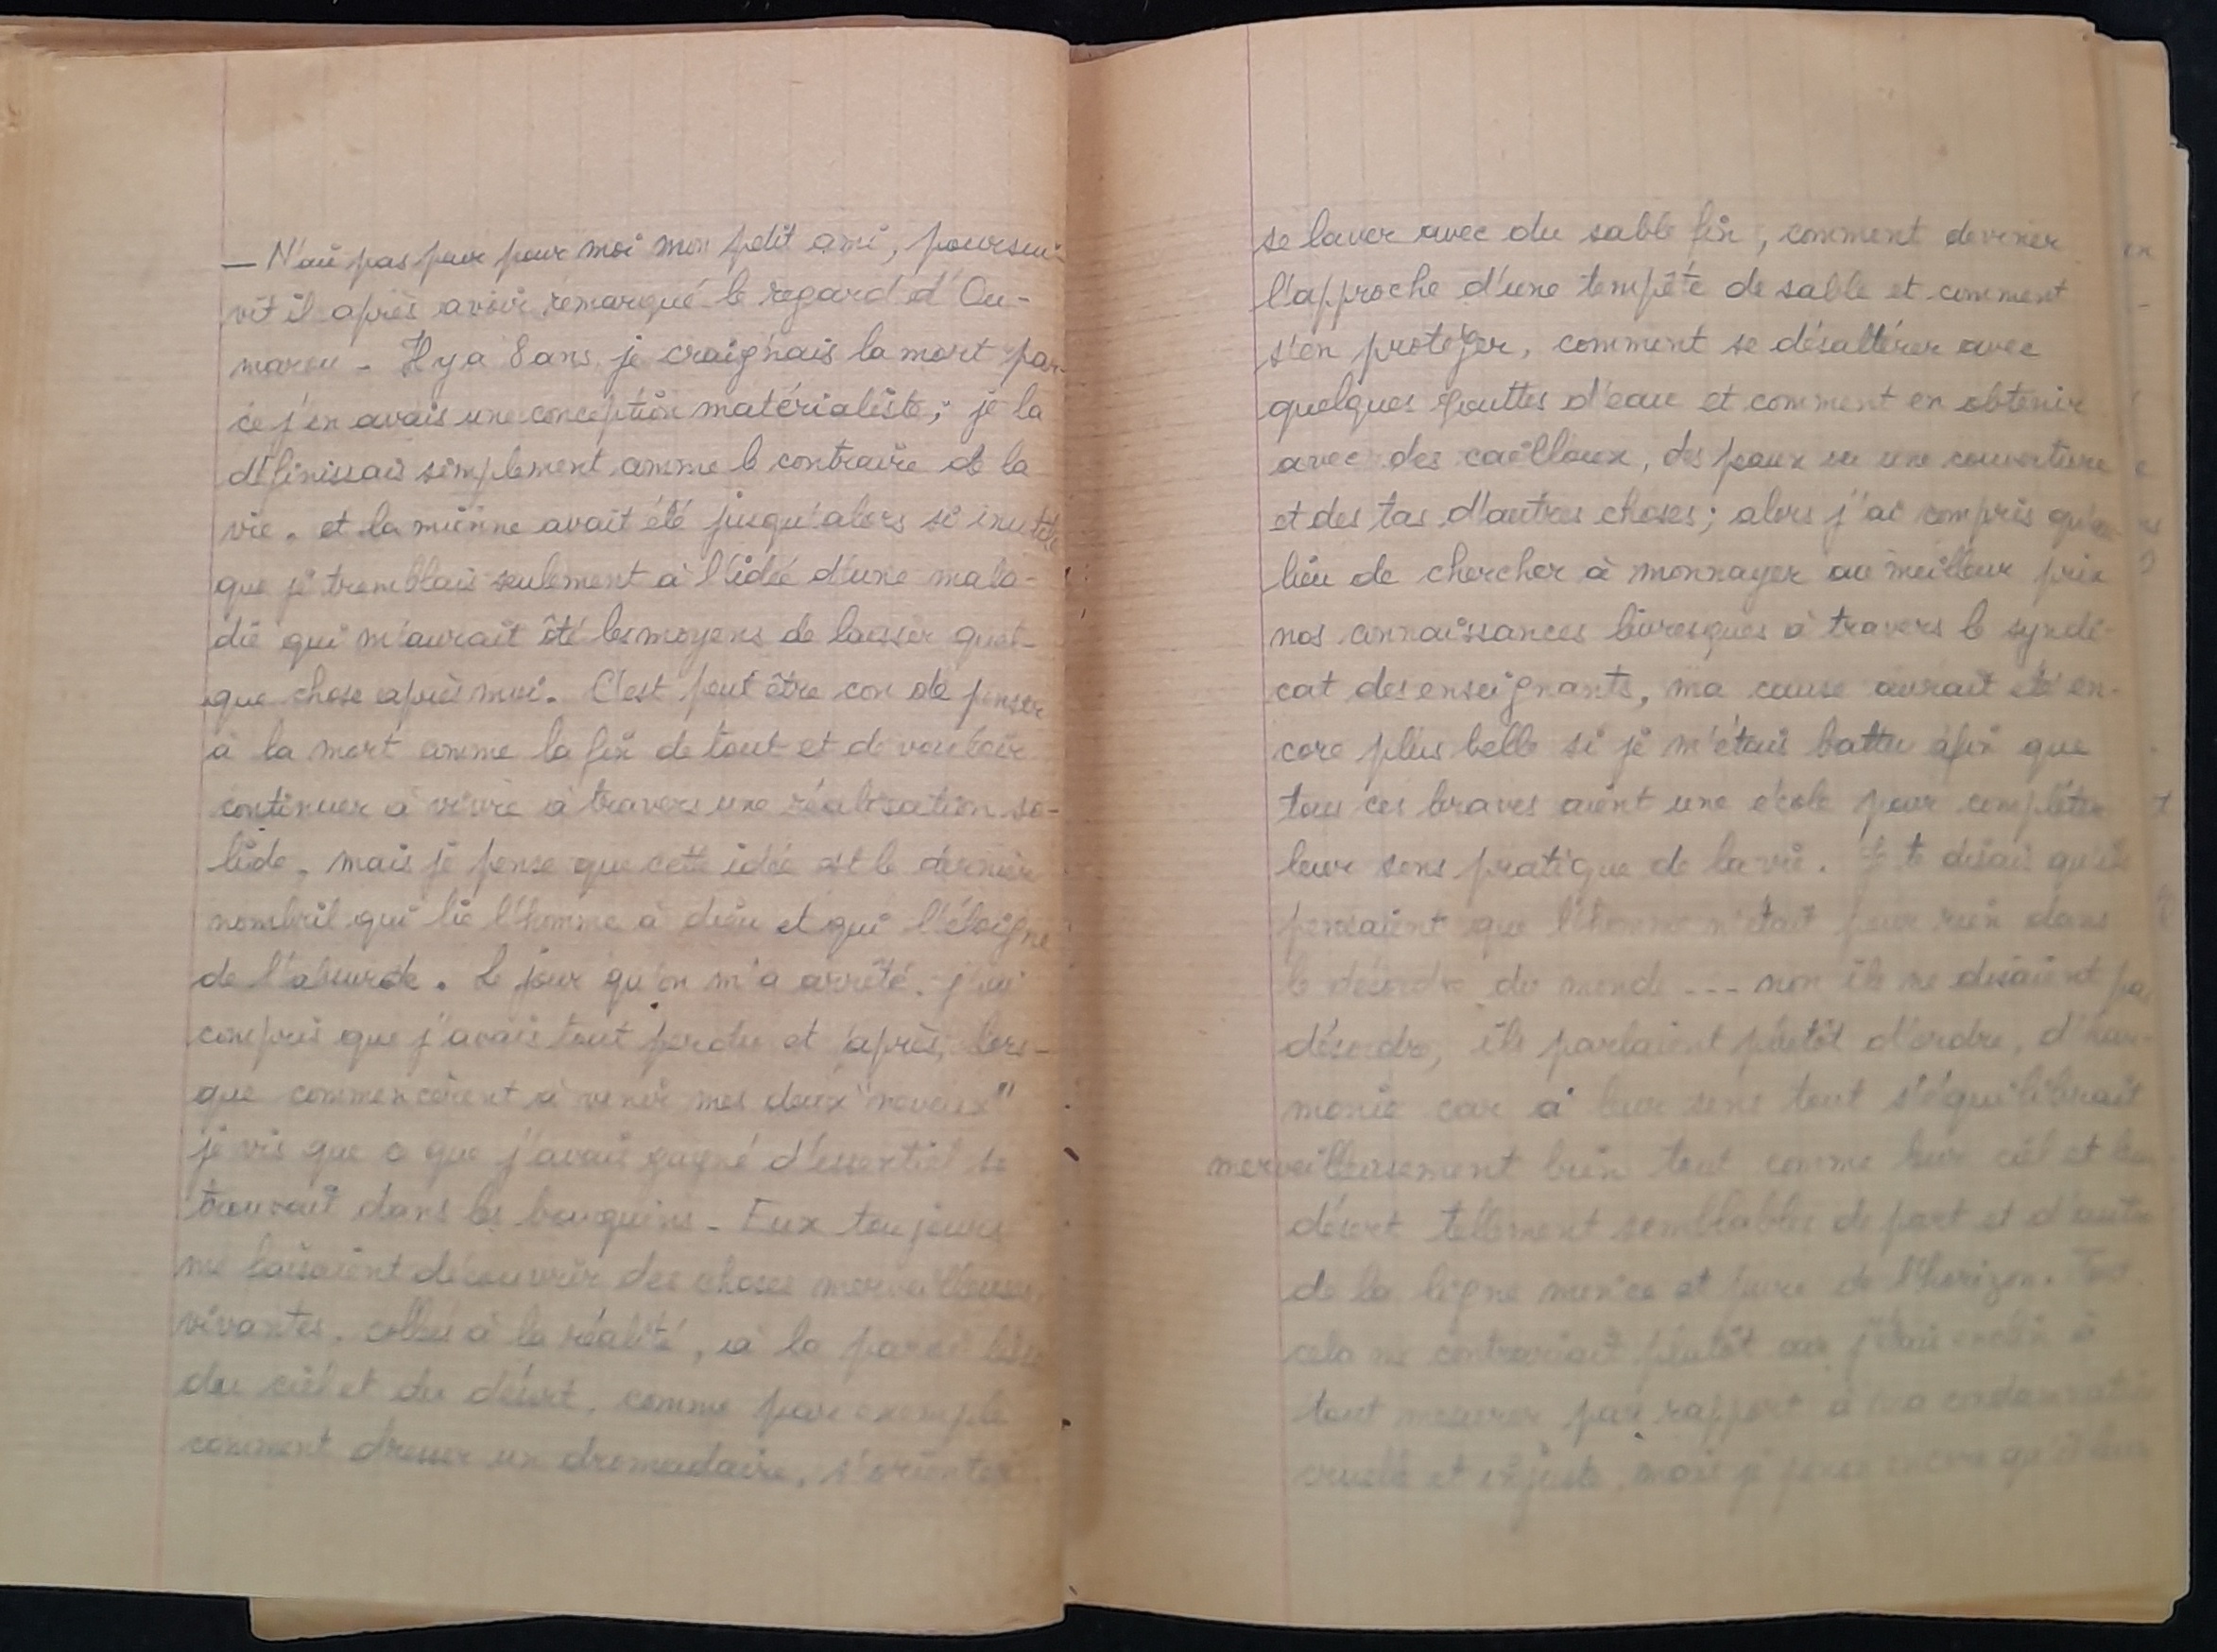 — N'aie pas peur pour moi mon petit ami, poursui-
vit il après avoir remarqué le regard d'Ou-
marou - Il y a 8 ans je craignais la mort par-
ce j'en avais une conception matérialiste; je la
définissais simplement comme le contraire de la
vie. et la mienne avait été jusqu'alors si inutile
que je tremblais seulement à l'idée d'une mala-
die qui m'aurait ôté les moyens de laisser quel-
que chose après moi. C'est peut être con de penser
à la mort comme la fin de tout et de vouloir
continuer à vivre à travers une réalisation so-
lide, mais je pense que cette idée est le dernier
nombril qui lie l'homme à dieu et qui l'éloigne
de l'absurde. Le jour qu'on m'a arrêté, j'ai
compris que j'avais tout perdu et après, lors-
que commencèrent à venir mes deux "neveux"
je vis que ce que j'avais gagné d'essentiel se
trouvait dans les bouquins - Eux toujours
me faisaient découvrir des choses merveilleuses,
vivantes, collées à la réalité, à la paroi
du ciel et du désert, comme par exemple
comment dresser un dromadaire, s'orienter
se laver avec du sable fin, comment deviner
l'approche d'une tempête de sable et comment
s'en protéger, comment se désaltérer avec
quelques gouttes d'eau et comment en obtenir
avec des cailloux, des peaux ou une couverture
et des tas d'autres choses; alors j'ai compris qu'au
lieu de chercher à monnayer au meilleur prix
nos connaissances livresques à travers le syndi-
cat des enseignants, ma cause aurait été en-
core plus belle si je m'étais battu afin que
tous ces braves aient une école pour compléter
leur sens pratique de la vie. Je te disais qu'ils
pensaient que l'homme n'était pour rien dans
le désordre du monde --- non ils ne disaient pas
désordre, ils parlaient plutôt d'ordre, d'har-
monie car à leur sens tout s'équilibrait
merveilleusement bien tout comme leur ciel et leur
désert tellement semblables de part et d'autre
de la ligne mince et pure de l'horizon. Tout
cela me contrariait plutôt car j'étais enclin à
tout mesurer par rapport à ma condamnation
cruelle et injuste, mais je pense encore